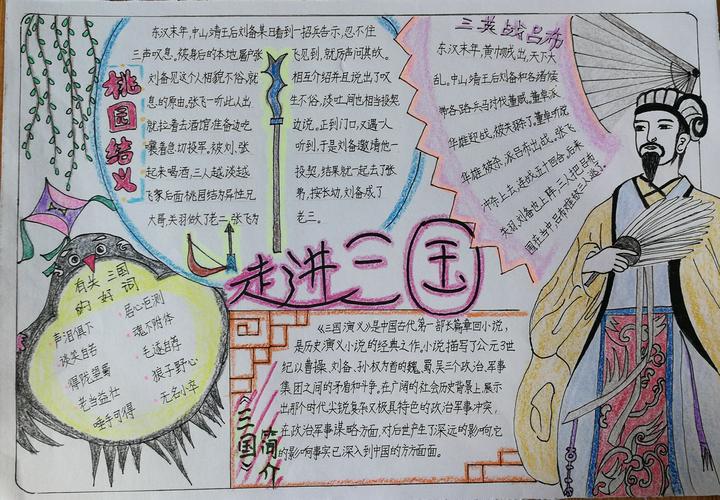 桃园结义
东汉末年,中山靖王后刘备某日看到一招兵告示,忍不住
三声叹息。候身后的本地屠户张飞见到,就厉声问其故。
刘备见这个人相貌不俗,就相互介绍并且说出了叹
息的原由。张飞一听此人出生不俗,谈吐间也相当投契
就拉着去酒馆准备边吃边说。正到门口,又遇一人
嚷着急切投军。被刘、张听到,于是刘备邀请他一
起来喝酒,三人越谈越投契,结果就一起去了张
飞家后面桃园结为异性兄弟,按长幼,刘备成了
大哥,关羽做了老二,张飞为老三。
三英战吕布
东汉末年,黄巾贼出,天下大
乱。中山靖王后刘备和各诸侯
带各路兵马讨伐董贼。董卓派
华雄迎战,被关羽杀了。董卓听说
华雄被杀,派吕布出战。张飞
冲杀上去,连战五十回合。后来
关羽、刘备也上阵,三人把吕布
围在当中,吕布难敌三人逃了。
走进三国
有关三国
的好词
声泪俱下
谈笑自若
得陇望蜀
老当益壮
唾手可得
居心叵测
魂不附体
毛遂自荐
狼子野心
无名小卒
《三国》
简介
《三国演义》是中国古代第一部长篇章回小说,
是历史演义小说的经典之作,小说描写了公元3世
纪以曹操、刘备、孙权为首的魏、蜀、吴三个政治、军事
集团之间的矛盾和斗争。在广阔的社会历史背景上,展示
出那个时代尖锐复杂又极具特色的政治军事冲突,
在政治军事谋略方面,对后世产生了深远的影响,它
的影响事实已深入到中国的方方面面。